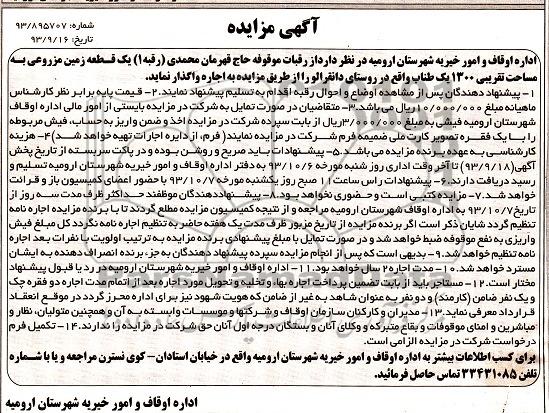 آگهی مزایده
شماره: ۹۳/۸۹۵۷۰۷
تاریخ: ۹۳/۹/۱۶
اداره اوقاف و امور خیریه شهرستان ارومیه در نظر دارد از رقبات موقوفه حاج قهرمان محمدی (رقبه۱) یک قطعه زمین مزروعی به
مساحت تقریبی ۱۳۰۰ یک طناب واقع در روستای دانقرالو را از طریق مزایده به اجاره واگذار نماید.
۱- پیشنهاد دهندگان پس از مشاهده اوضاع و احوال رقبه اقدام به تسلیم پیشنهاد نمایند.۲- قیمت پایه برابر نظر کارشناس
ماهیانه مبلغ ۱۰/۰۰۰/۰۰۰ریال می باشد.۳- متقاضیان در صورت تمایل به شرکت در مزایده بایستی از امور مالی اداره اوقاف
شهرستان ارومیه فیش به مبلغ ۳/۰۰۰/۰۰۰ریال از بابت سپرده شرکت در مزایده اخذ و ضمن واریز به حساب، فیش مربوطه
را با یک فقره تصویر کارت ملی ضمیمه فرم شرکت در مزایده نمایند( فرم، از دایره اجارات تهیه خواهد شد)۴- هزینه
کارشناسی به عهده برنده مزایده می باشد.۵- پیشنهادات باید صریح و روشن بوده و در پاکت سربسته از تاریخ پخش
آگهی(۹۳/۹/۱۸) تا آخر وقت اداری روز شنبه مورخه ۹۳/۱۰/۶ به دفتر اداره اوقاف و امور خیریه شهرستان ارومیه تسلیم و
رسید دریافت دارند.۶- پیشنهادات راس ساعت ۱۰ صبح روز یکشنبه مورخه ۹۳/۱۰/۷ با حضور اعضای کمیسیون باز و قرائت
خواهد شد.۷- مزایده کتبی است و حضوری نخواهد بود.۸- پیشنهاددهندگان موظفند حداکثر ظرف مدت سه روز از
تاریخ۹۳/۱۰/۷ به اداره اوقاف شهرستان ارومیه مراجعه و از نتیجه کمیسیون مزایده مطلع گردند تا با برنده مزایده اجاره نامه
تنظیم گردد شایان ذکر است اگر برنده مزایده از تاریخ مزبور ظرف مدت یک هفته حاضر به تنظیم اجاره نامه نگردد کل مبلغ فیش
واریزی به نفع موقوفه ضبط خواهد شد و در صورت تمایل با مبلغ پیشنهادی برنده مزایده به ترتیب اولویت با نفرات بعد اجاره
نامه تنظیم خواهد شد.۹- بدیهی است که پس از انجام مزایده سپرده پیشنهاد دهندگان به جز، برنده انصراف دهنده به ایشان
مسترد خواهد شد.۱۰- مدت اجاره ۲ سال خواهد بود.۱۱- اداره اوقاف و امور خیریه شهرستان ارومیه در رد یا قبول پیشنهاد
مختار است.۱۲- مستاجر باید از بابت تضمین پرداخت اجاره بها، و تخلیه و تحویل مورد اجاره بعد از اتمام مدت اجاره دو فقره چک
و یک نفر ضامن (کارمند) و دو نفر به عنوان شاهد به غیر از ضامن که هویت شهود نیز برای اداره محرز گردد در موقع انعقاد
قرارداد معرفی نماید.۱۳- مدیران و کارکنان سازمان اوقاف و شرکتها و موسسات وابسته به آن و همچنین متولیان، نظار و
مباشرین و امنای موقوفات و بقاع متبرکه و وکلای آنان و بستگان درجه اول آنان حق شرکت در مزایده را ندارند.۱۴- تکمیل فرم
درخواست شرکت در مزایده الزامی است.
برای کسب اطلاعات بیشتر به اداره اوقاف و امور خیریه شهرستان ارومیه واقع در خیابان استادان – کوی نسترن مراجعه و یا با شماره
تلفن ۳۳۴۳۱۰۸۵ تماس حاصل فرمائید.
اداره اوقاف و امور خیریه شهرستان ارومیه